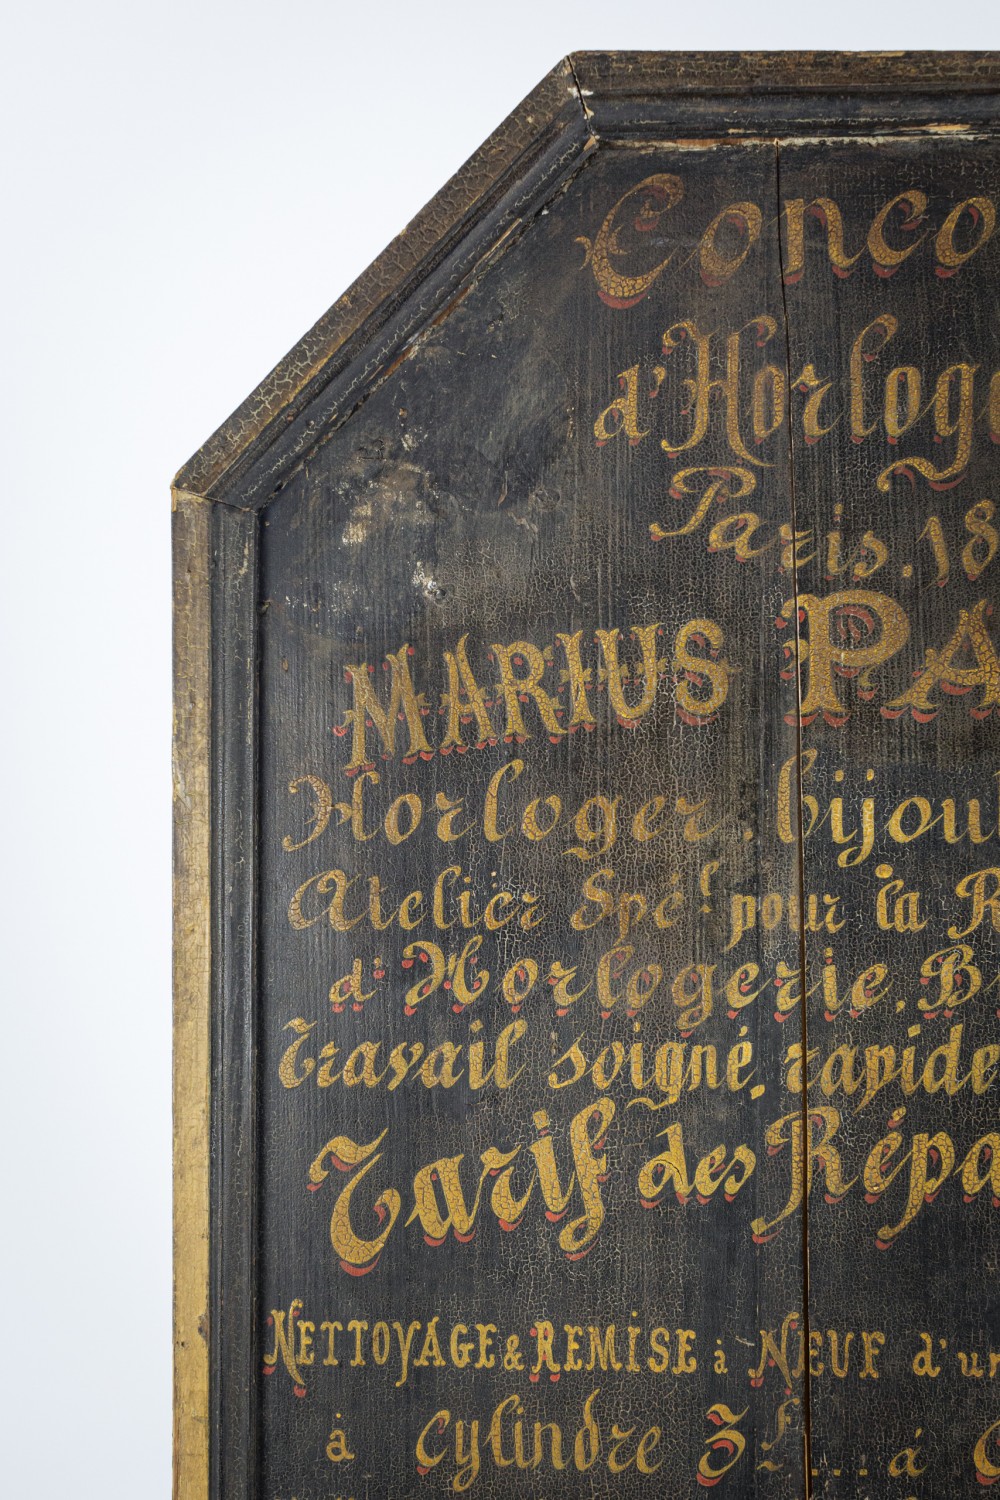 Conco
d'Horloge
Paris. 18
MARIUS PA
Horloger, bijou
Atelier Spé! pour la R
d'Horlogerie. B
Travail soigné, rapide
Tarif des Répa
NETTOYAGE & REMISE à NEUF d'un
à cylindre 3f .... á